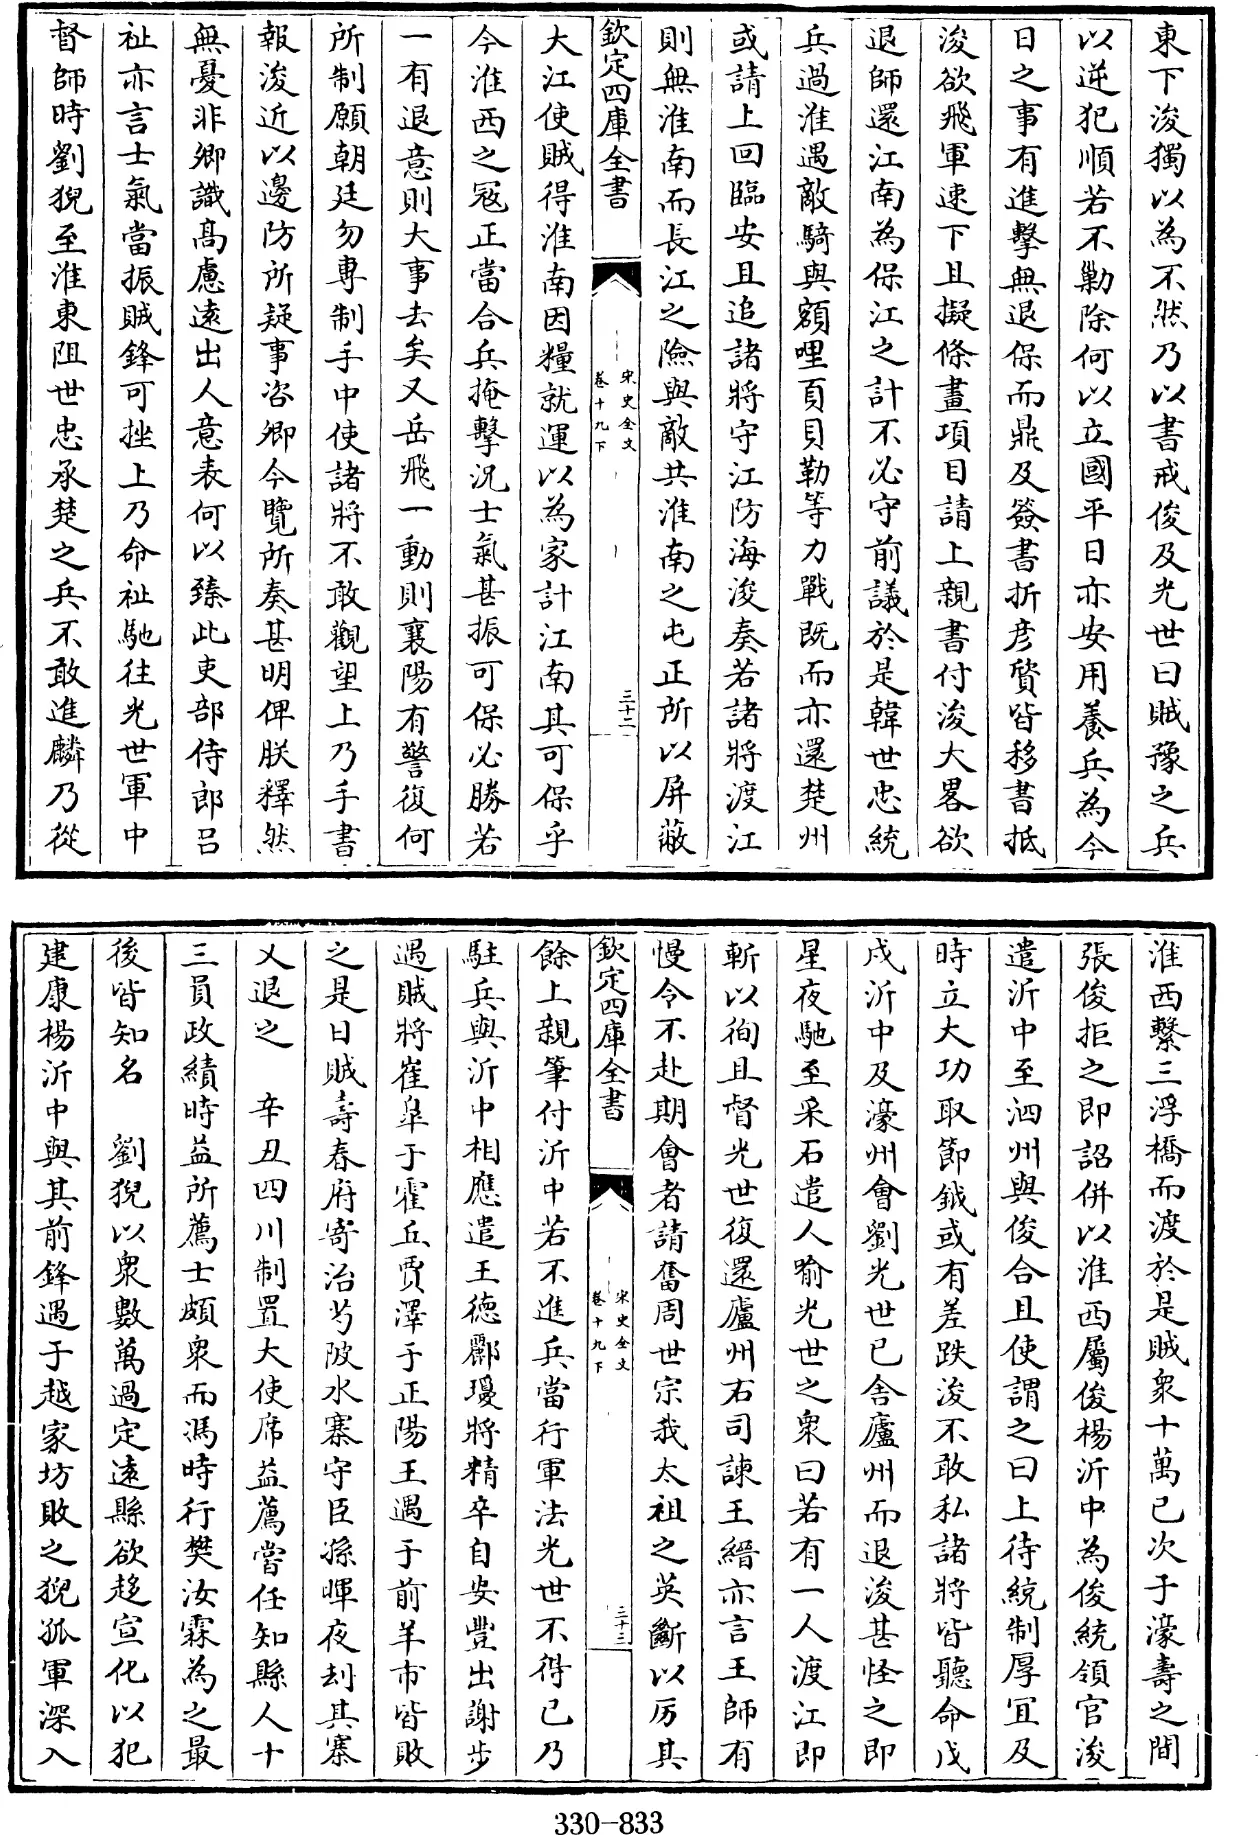 東下浚獨以為不然乃以書戒俊及光世曰賊豫之兵
以逆犯順若不勦除何以立國平日亦安用養兵為今
日之事有進擊無退保而鼎及簽書折彦質皆移書抵
浚欲飛軍速下且擬條畫項目請上親書付浚大畧欲
退師還江南為保江之計不必守前議於是韓世忠統
兵過淮遇敵騎與額哩頁貝勒等力戰既而亦還楚州
或請上回臨安且追諸將守江防海浚奏若諸將渡江
則無淮南而長江之險與敵共淮南之屯正所以屏蔽
欽定四庫全書
宋史全文
卷十九下
三十二
大江使賊得淮南因糧就運以為家計江南其可保乎
今淮西之冦正當合兵掩擊況士氣甚振可保必勝若
一有退意則大事去矣又岳飛一動則襄陽有警復何
所制願朝廷勿專制手中使諸將不敢觀望上乃手書
報浚近以邊防所疑事咨卿今覽所奏甚明俾朕釋然
無憂非卿識髙慮逺出人意表何以臻此吏部侍郎呂
祉亦言士氣當振賊鋒可挫上乃命祉馳往光世軍中
督師時劉猊至淮東阻世忠承楚之兵不敢進麟乃從
淮西繫三浮橋而渡於是賊衆十萬已次于濠壽之間
張俊拒之即詔併以淮西屬俊楊沂中為俊統領官浚
遣沂中至泗州與俊合且使謂之曰上待統制厚宜及
時立大功取節鉞或有差跌浚不敢私諸將皆聽命戊
戌沂中及濠州會劉光世已舍廬州而退浚甚怪之即
星夜馳至采石遣人喻光世之衆曰若有一人渡江即
斬以徇且督光世復還廬州右司諫王縉亦言王師有
慢令不赴期會者請奮周世宗我太祖之英斷以厉其
欽定四庫全書
宋史全文
卷十九下
三十三
餘上親筆付沂中若不進兵當行軍法光世不得已乃
駐兵與沂中相應遣王德酈瓊將精卒自安豐出謝步
遇賊將崔臯于霍丘賈澤于正陽王遇于前羊市皆敗
之是日賊壽春府寄治芍陂水寨守臣孫暉夜刦其寨
乂退之　辛丑四川制置大使席益薦嘗任知縣人十
三員政績時益所薦士頗衆而馮時行樊汝霖為之最
後皆知名　劉猊以衆數萬過定逺縣欲趍宣化以犯
建康楊沂中與其前鋒遇于越家坊敗之猊孤軍深入
330-833